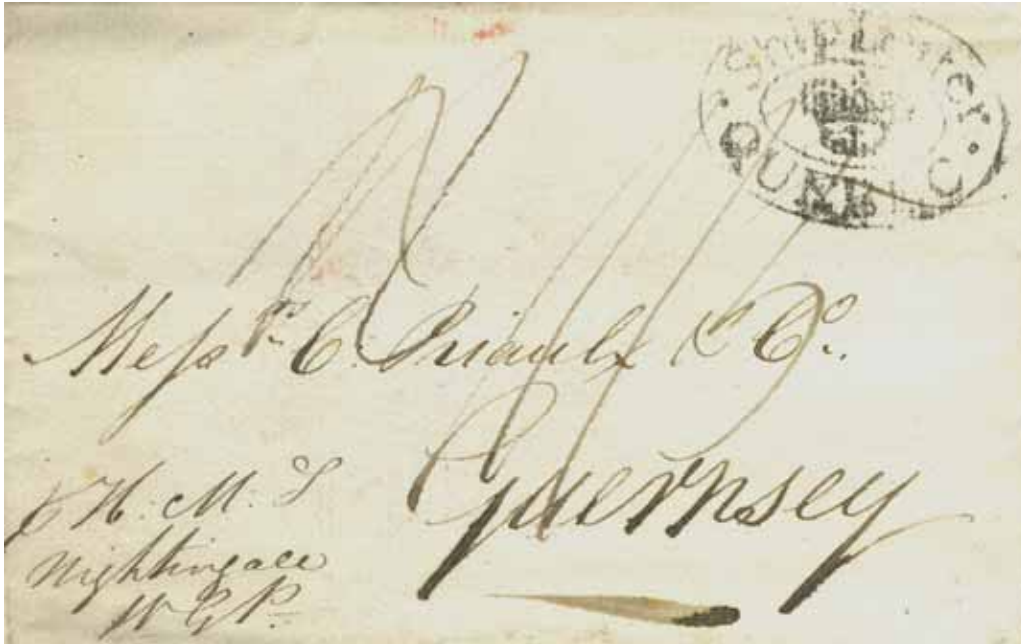 SHIP LETTER
DUNBAR
Messrs. C. Priaulx & Co.
Guernsey
H. M. S
Nightingale
W G P.